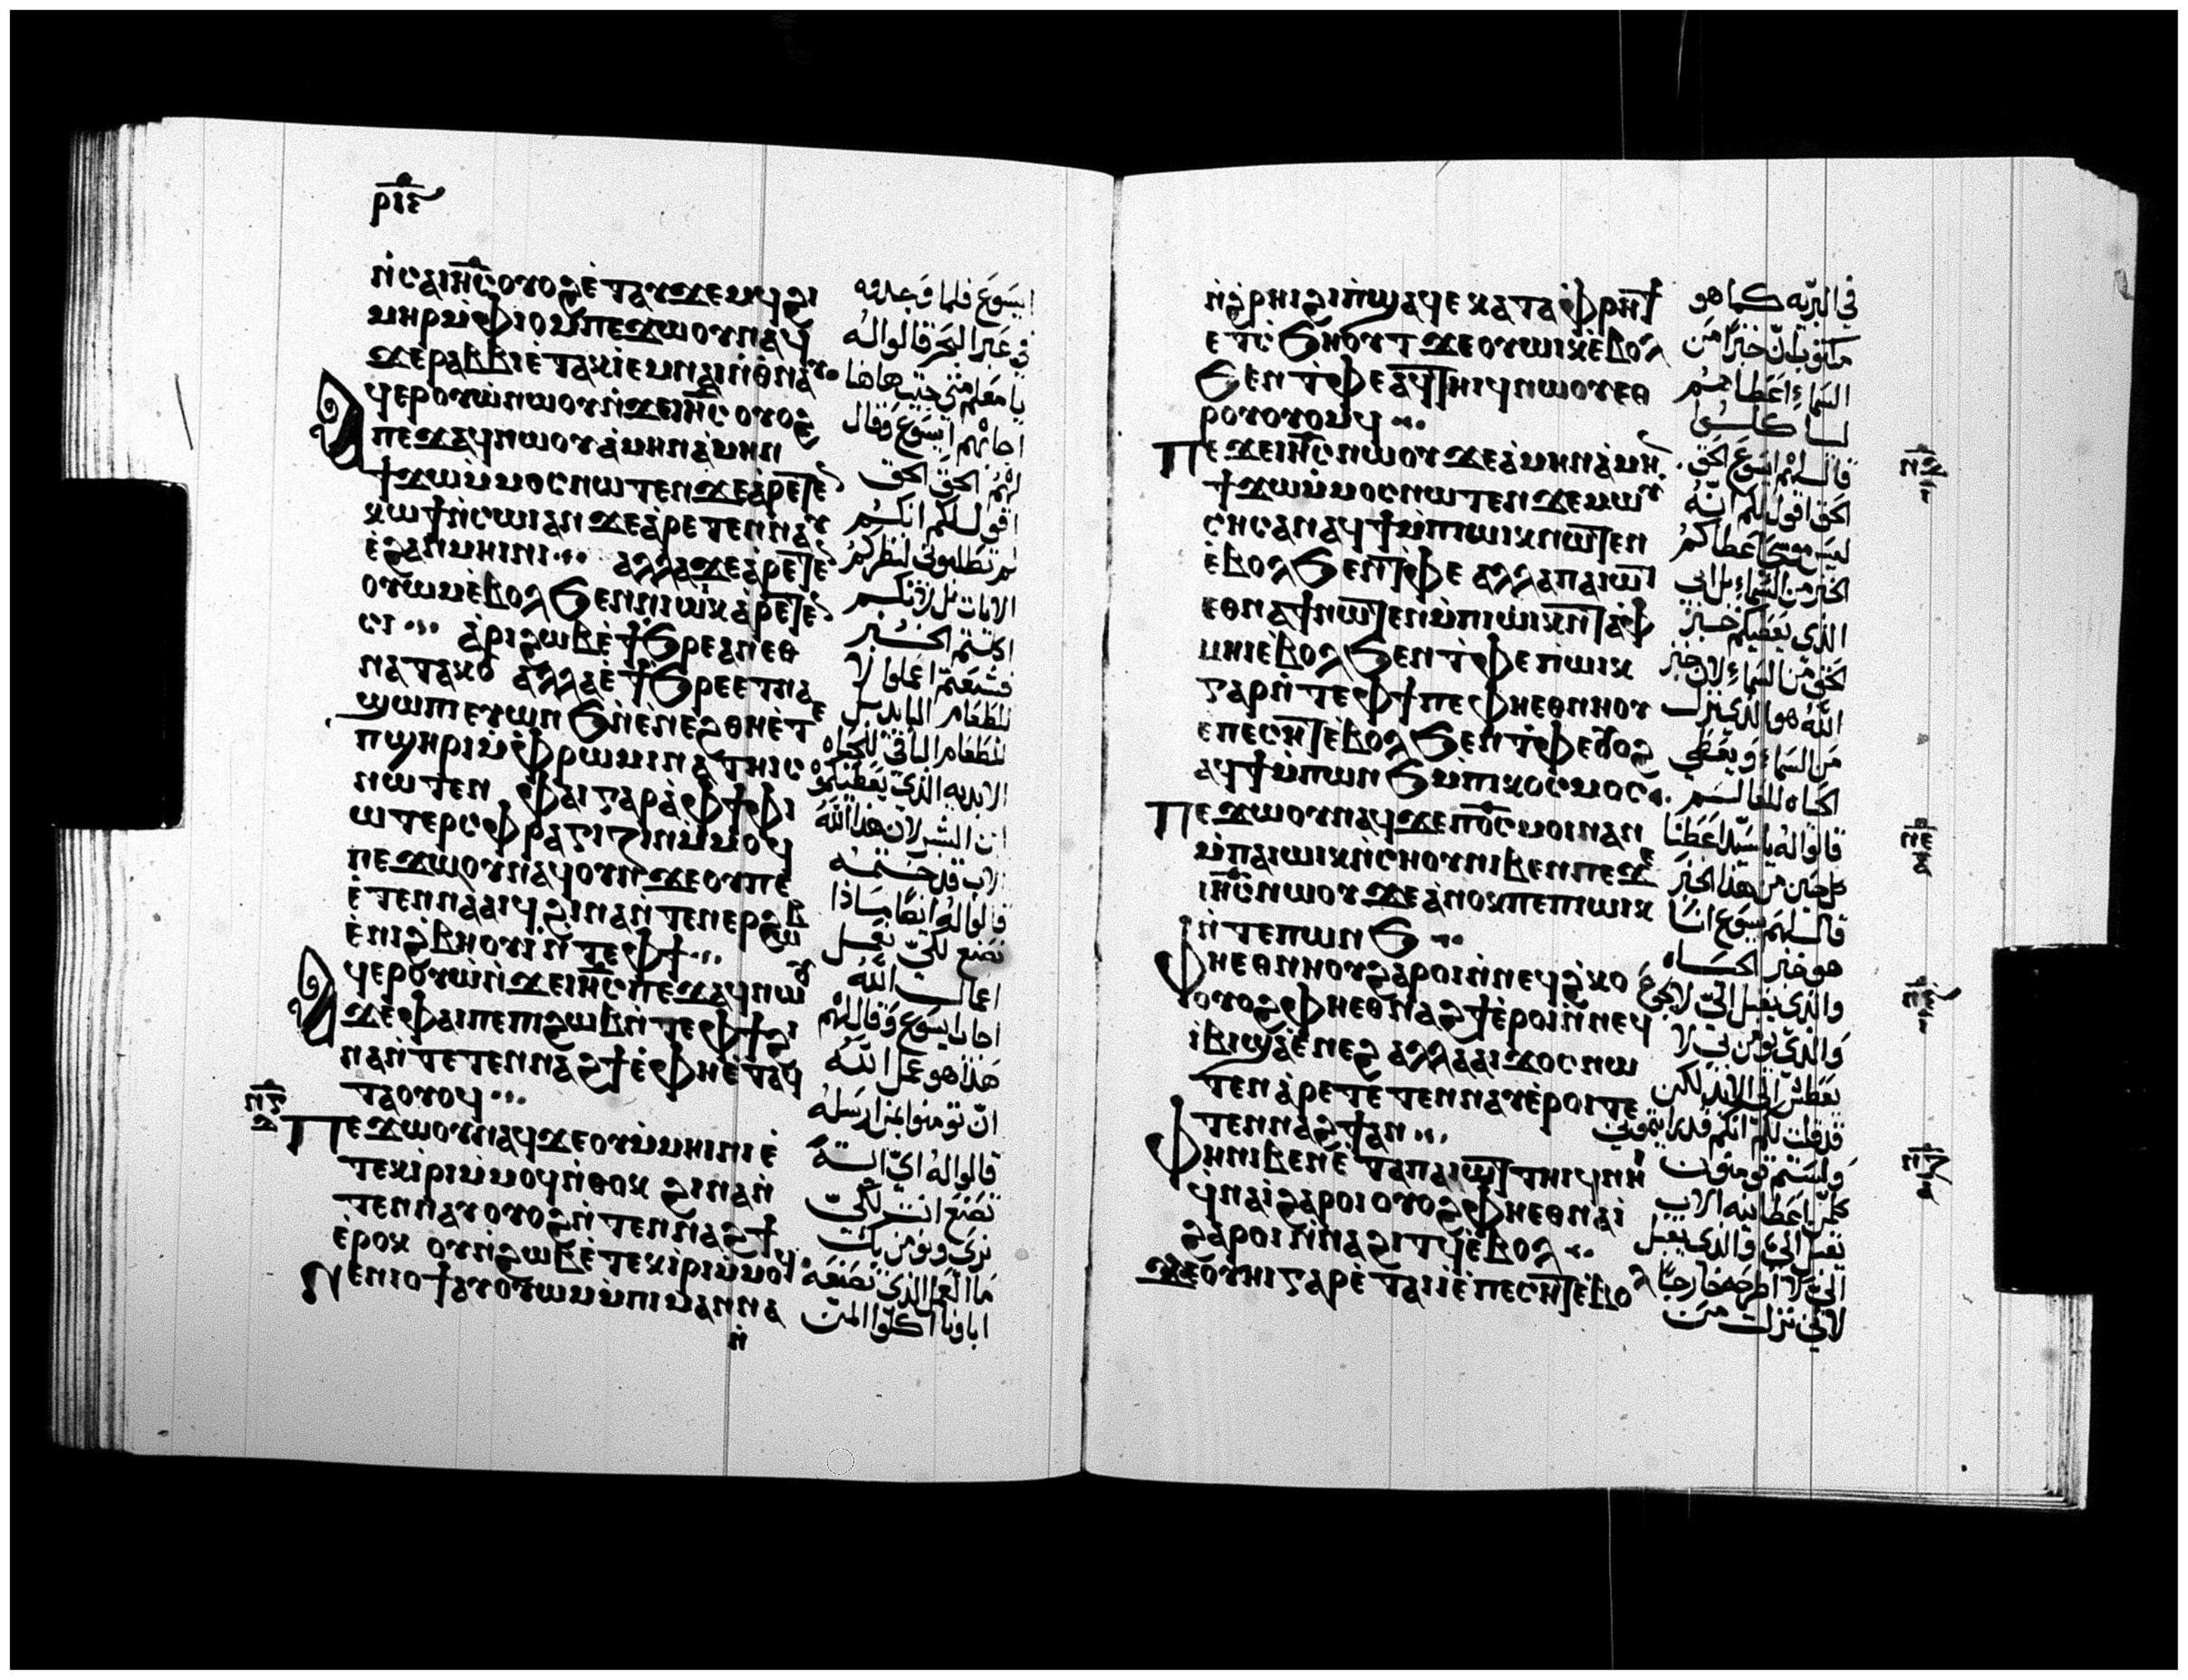 ⲣⲓⲉ
ⲛ̀ⲥⲁⲓⲏ̅ⲥ̅ⲟⲩⲟϩⲉ̀ⲧⲁⲩϫⲉⲙϥϩⲓ
ⲙⲏⲣⲙ̀ⲫⲓⲟⲙⲡⲉϫⲱⲟⲩⲛⲁϥ
ϫⲉⲣⲁⲃⲃⲓⲉ̀ⲧⲁⲕⲓ̀ⲉⲙⲛⲁⲓⲛ̀ⲑⲛⲁⲩ
ⲁϥⲉⲣⲟⲩⲱ̀ⲛⲱⲟⲩⲛ̀ϫⲉⲓⲏ̅ⲥ̅ⲟⲩⲟϩ
ⲡⲉϫⲁϥⲛⲱⲟⲩⲁ̀ⲙⲏⲛⲁ̀ⲙⲏⲛ
ϯϫⲱⲙ̀ⲙⲟⲥⲛⲱⲧⲉⲛϫⲉⲁ̀ⲣⲉⲧⲉ
ⲕⲱϯⲛ̀ⲥⲱⲓⲁⲛϫⲉⲁ̀ⲣⲉⲧⲉⲛⲛⲁⲩ
ⲉ̀ϩⲁⲛⲙⲏⲓⲛⲓ ⲁⲗⲗⲁϫⲉⲁ̀ⲣⲉⲧⲉ
ⲟⲩⲱⲙⲉ̀ⲃⲟⲗϧⲉⲛⲛⲓⲱⲓⲕⲁ̀ⲣⲉⲧⲉ
ⲥⲓ ⲁ̀ⲣⲓϩⲱⲃⲉ̀ϯϧⲣⲉⲁⲛⲉⲑ
ⲛⲁⲧⲁⲕⲟ ⲁⲗⲗⲁⲉ̀ϯϧⲣⲉⲉⲧⲛⲁ
ϣⲱⲡⲉⲩⲱⲛϧⲛ̀ⲉ̀ⲛⲉϩⲑⲏⲉ̀ⲧⲉ
ⲡϣⲏⲣⲓⲙ̀ⲫⲣⲱⲙⲓⲛⲁⲧⲏⲓⲥ
ⲛⲱⲧⲉⲛ ⲫⲁⲓⲅⲁⲣⲁ̀ⲫϯⲫⲓ
ⲱⲧⲉⲣⲥⲫⲣⲁⲅⲓⲍⲓⲛⲙ̀ⲙⲟϥ
ⲡⲉϫⲱⲟⲩⲛⲁϥⲟⲩⲛϫⲉⲟⲩⲡⲉ
ⲉ̀ⲧⲉⲛⲛⲁⲁⲓϥϩⲓⲛⲁⲛ̀ⲧⲉⲛⲉⲣϩⲱⲃ
ⲉ̀ⲛⲓϩ̀ⲃⲏⲟⲩⲓ̀ⲛ̀ⲧⲉⲫϯ
ⲁϥⲉⲣⲟⲩⲱ̀ⲛ̀ϫⲉⲓⲏ̅ⲥ̅ⲡⲉϫⲁϥⲛⲱⲟⲩ
ϫⲉⲫⲁⲓⲡⲉⲡⲓϩⲱⲃⲛ̀ⲧⲉⲫϯϩⲓ
ⲛⲁⲛ̀ⲧⲉⲧⲉⲛⲛⲁϩϯⲉ̀ⲫⲏⲉ̀ⲧⲁϥ
ⲧⲁⲟⲩⲟϥ
ⲡⲉϫⲱⲟⲩⲛⲁϥϫⲉⲟⲩⲙ̀ⲙⲏⲓⲛⲓⲉ̀
ⲧⲉⲕⲓ̀ⲣⲓⲙ̀ⲙⲟϥⲛ̀ⲑⲟⲕ ϩⲓⲛⲁⲛ̀
ⲧⲉⲛⲛⲁⲩⲟⲩⲟϩⲛ̀ⲧⲉⲛⲛⲁϩϯ
ⲉ̀ⲣⲟⲕ ⲟⲩⲛ̀ϩⲱⲃⲉ̀ⲧⲉⲕⲓ̀ⲣⲓⲙ̀ⲙⲟϥ
ⲛⲉⲛⲓⲟϯⲁⲩⲟⲩⲱⲙⲙ̀ⲡⲓⲙⲁⲛⲛⲁ
ⲛ̀
ايسوع فلما وجدوه
في عبر البحر قالوا له
يا معلم متى جيت هاهنا
اجابهم ايسوع وقال
لهم الحق الحق
اقول لكم انكم
لم تطلبوني لنظركم
الايات بل لانكم
اكلتم الخبز
فشبعتم اعملوا لا
للطعام البايد بل
للطعام الباقي للحياه
الابديه الذي يعطيكموه
ابن البشر لان هذا الله
الاب قد ختمه
قالوا له ايضا ماذا
نصنع لكي نعمل
اعمال الله
اجاب ايسوع وقال لهم
هذا هو عمل الله
ان تومنوا بمن ارسله
قالوا له اي اية
تصنع انت لكي
نرى ونومن بك
ما العمل الذي تصنعه
اباونا اكلوا المن
ⲛ̀ϩ̀ⲣⲏⲓϩⲓⲡϣⲁϥⲉⲕⲁⲧⲁⲫⲣⲏϯ
ⲉⲧⲥ̀ϧⲏⲟⲩⲧϫⲉⲟⲩⲱⲓⲕⲉ̀ⲃⲟⲗ
ϧⲉⲛⲧ̀ⲫⲉⲁϥⲧⲏⲓϥⲛⲱⲟⲩⲉⲑ
ⲣⲟⲩⲟⲩⲟⲙϥ
ⲡⲉϫⲉⲓⲏ̅ⲥ̅ⲛⲱⲟⲩϫⲉⲁ̀ⲙⲏⲛⲁ̀ⲙⲏⲛ
ϯϫⲱⲙ̀ⲙⲟⲥⲛⲱⲧⲉⲛϫⲉⲙⲱⲩ
ⲥⲏⲥⲁⲛⲁϥϯⲙ̀ⲡⲓⲱⲓⲕⲛⲱⲧⲉⲛ
ⲉ̀ⲃⲟⲗϧⲉⲛⲧ̀ⲫⲉ ⲁⲗⲗⲁⲡⲁⲓⲱⲧ
ⲉⲑⲛⲁϯⲛⲱⲧⲉⲛⲙ̀ⲡⲓⲱⲓⲕⲛ̀ⲧⲁⲫ
ⲙⲏⲓⲉ̀ⲃⲟⲗϧⲉⲛⲧ̀ⲫⲉⲡⲓⲱⲓⲕ
ⲅⲁⲣⲛ̀ⲧⲉⲫϯⲡⲉⲫⲏⲉⲑⲛⲏⲟⲩ
ⲉⲡⲉⲥⲏⲧⲉ̀ⲃⲟⲗϧⲉⲛⲧ̀ⲫⲉⲟⲩⲟϩ
ⲁϥϯⲙ̀ⲡⲱⲛϧⲙ̀ⲡⲓⲕⲟⲥⲙⲟⲥ
ⲡⲉϫⲱⲟⲩⲛⲁϥϫⲉⲡⲟ̅ⲥ̅ⲙⲟⲓⲛⲁⲛ
ⲙ̀ⲡⲁⲓⲱⲓⲕⲛ̀ⲥⲏⲟⲩⲛⲓⲃⲉⲛⲡⲉϫⲉ
ⲓⲏ̅ⲥ̅ⲛⲱⲟⲩϫⲉⲁ̀ⲛⲟⲕⲡⲉⲡⲓⲱⲓⲕ
ⲛ̀ⲧⲉⲡⲱⲛϧ
ⲫⲏⲉⲑⲛⲏⲟⲩϩⲁⲣⲟⲓⲛ̀ⲛⲉϥϩ̀ⲕⲟ
ⲟⲩⲟϩⲫⲏⲉⲑⲛⲁϩϯⲉ̀ⲣⲟⲓⲛ̀ⲛⲉϥ
ⲓⲃⲓϣⲁⲉ̀ⲛⲉϩ ⲁⲗⲗⲁⲁⲓϫⲟⲥⲛⲱ
ⲧⲉⲛⲁ̀ⲣⲉⲧⲉⲧⲉⲛⲛⲁⲩⲉ̀ⲣⲟⲓⲧⲉ
ⲧⲉⲛⲛⲁϩϯⲁⲛ
ⲫⲏⲛⲓⲃⲉⲛⲉ̀ⲧⲁⲡⲁⲓⲱⲧⲧⲏⲓϥⲛⲏⲓ
ϥⲛⲁⲓ̀ϩⲁⲣⲟⲓⲟⲩⲟϩⲫⲏⲉⲑⲛⲁⲓ̀
ϩⲁⲣⲟⲓⲛ̀ⲛⲁϩⲓⲧϥⲉ̀ⲃⲟⲗ
ϫⲉⲟⲩⲏⲓⲅⲁⲣⲉ̀ⲧⲁⲓⲓ̀ⲉ̀ⲡⲉⲥⲏⲧⲉ̀ⲃⲟⲗ
في البريه كما هو
مكتوب ان خبزا من
السماء اعطاهم
لياكلوا
قال لهم ايسوع الحق
الحق اقول لكم انه
ليس موسى اعطاكم
الخبز من السماء بل ابي
الذي يعطيكم خبز
الحق من السماء لان خبز
الله هو الذي ينزل
من السماء ويعطي
الحياه للعالم
قالوا له يا سيد اعطنا
كل حين من هذا الخبز
قال لهم يسوع انا
هو خبز الحياه
والذي يقبل الي لا يجوع
والذي يومن بي لا
يعطش الى الابد لكن
قد قلت لكم انكم قد رايتموني
ولستم تومنون
كلمن اعطانيه الاب
يقبل الي والذي يقبل
الي لا اطرحه خارجا
لاني نزلت من